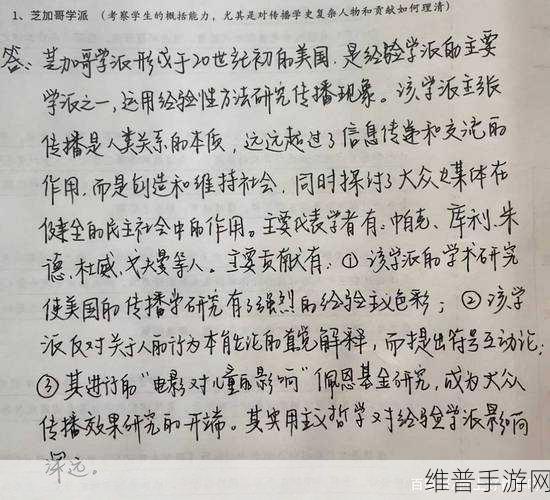 1、芝加哥学派 (考察学生的概括能力，尤其是对传播学史复杂人物和贡献如何理清)
答：芝加哥学派形成于20世纪初的美国，是经验学派的主要
学派之一，运用经验性方法研究传播现象。该学派主张
传播是人类关系的本质，远远超过了信息传递和交流的
作用，而是创造和维持社会，同时探讨了大众媒体在
健全的民主社会中的作用。主要代表学者有：帕克、库利、米
德、杜威、戈夫曼等人。主要贡献有：①该学派的学术研究
使美国的传播学研究有了强烈的经验主义色彩；②该学
派反对关于人的行为本能论的直觉解释，而提出符号互动论；
③其进行的“电影对儿童的影响”佩恩基金研究，成为大众
传播效果研究的开端。其实用主义哲学对经验学派影响
深远。
维普手游网